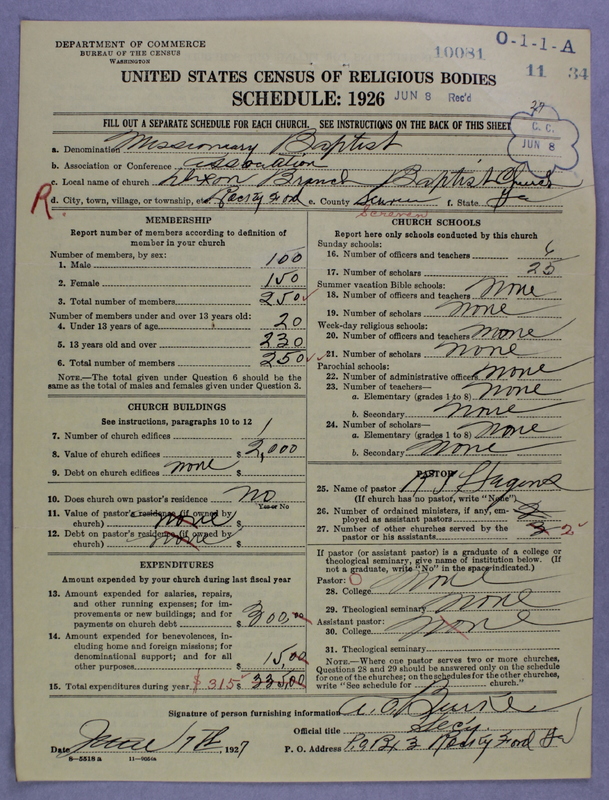 DEPARTMENT OF COMMERCE
BUREAU OF THE CENSUS
WASHINGTON
10081
O-1-1-A
11 34
UNITED STATES CENSUS OF RELIGIOUS BODIES
SCHEDULE: 1926
JUN 8 Rec'd
FILL OUT A SEPARATE SCHEDULE FOR EACH CHURCH. SEE INSTRUCTIONS ON THE BACK OF THIS SHEET
C. C.
JUN 8
a. Denomination Missionary Baptist
b. Association or Conference association
c. Local name of church Dixon Branch Baptist Church
R. d. City, town, village, or township, etc. Rocky Ford e. County Screven f. State. Ga
Screven
MEMBERSHIP
Report number of members according to definition of member in your church
Number of members, by sex:
1. Male 100
2. Female 150
3. Total number of members 250
Number of members under and over 13 years old:
4. Under 13 years of age 20
5. 13 years old and over 230
6. Total number of members 250
NOTE.—The total given under Question 6 should be the same as the total of males and females given under Question 3.
CHURCH BUILDINGS
See instructions, paragraphs 10 to 12
7. Number of church edifices 1
8. Value of church edifices $ 2,000
9. Debt on church edifices none $
10. Does church own pastor's residence no
Yes or No
11. Value of pastor's residence (if owned by church) none $
12. Debt on pastor's residence (if owned by church) none $
EXPENDITURES
Amount expended by your church during last fiscal year
13. Amount expended for salaries, repairs, and other running expenses; for improvements or new buildings; and for payments on church debt $ 300.00
14. Amount expended for benevolences, including home and foreign missions; for denominational support; and for all other purposes $ 15.00
15. Total expenditures during year. $315 $ 335.00
CHURCH SCHOOLS
Report here only schools conducted by this church
Sunday schools:
16. Number of officers and teachers 6
17. Number of scholars 25
Summer vacation Bible schools:
18. Number of officers and teachers none
19. Number of scholars none
Week-day religious schools:
20. Number of officers and teachers none
21. Number of scholars none
Parochial schools:
22. Number of administrative officers none
23. Number of teachers—
a. Elementary (grades 1 to 8) none
b. Secondary none
24. Number of scholars—
a. Elementary (grades 1 to 8) none
b. Secondary none
PASTOR
25. Name of pastor
(If church has no pastor, write "None")
26. Number of ordained ministers, if any, employed as assistant pastors
27. Number of other churches served by the pastor or his assistants 2
If pastor (or assistant pastor) is a graduate of a college or theological seminary, give name of institution below. (If not a graduate, write "No" in the space indicated.)
Pastor: O
28. College none
29. Theological seminary none
Assistant pastor:
30. College none
31. Theological seminary
NOTE.—Where one pastor serves two or more churches, Questions 28 and 29 should be answered only on the schedule for one of the churches; on the schedules for the other churches, write "See schedule for church."
Signature of person furnishing information
Official title Secy.
Date June 7th, 1927 P. O. Address Rocky Ford Ga
8—5518 a 11—9654a